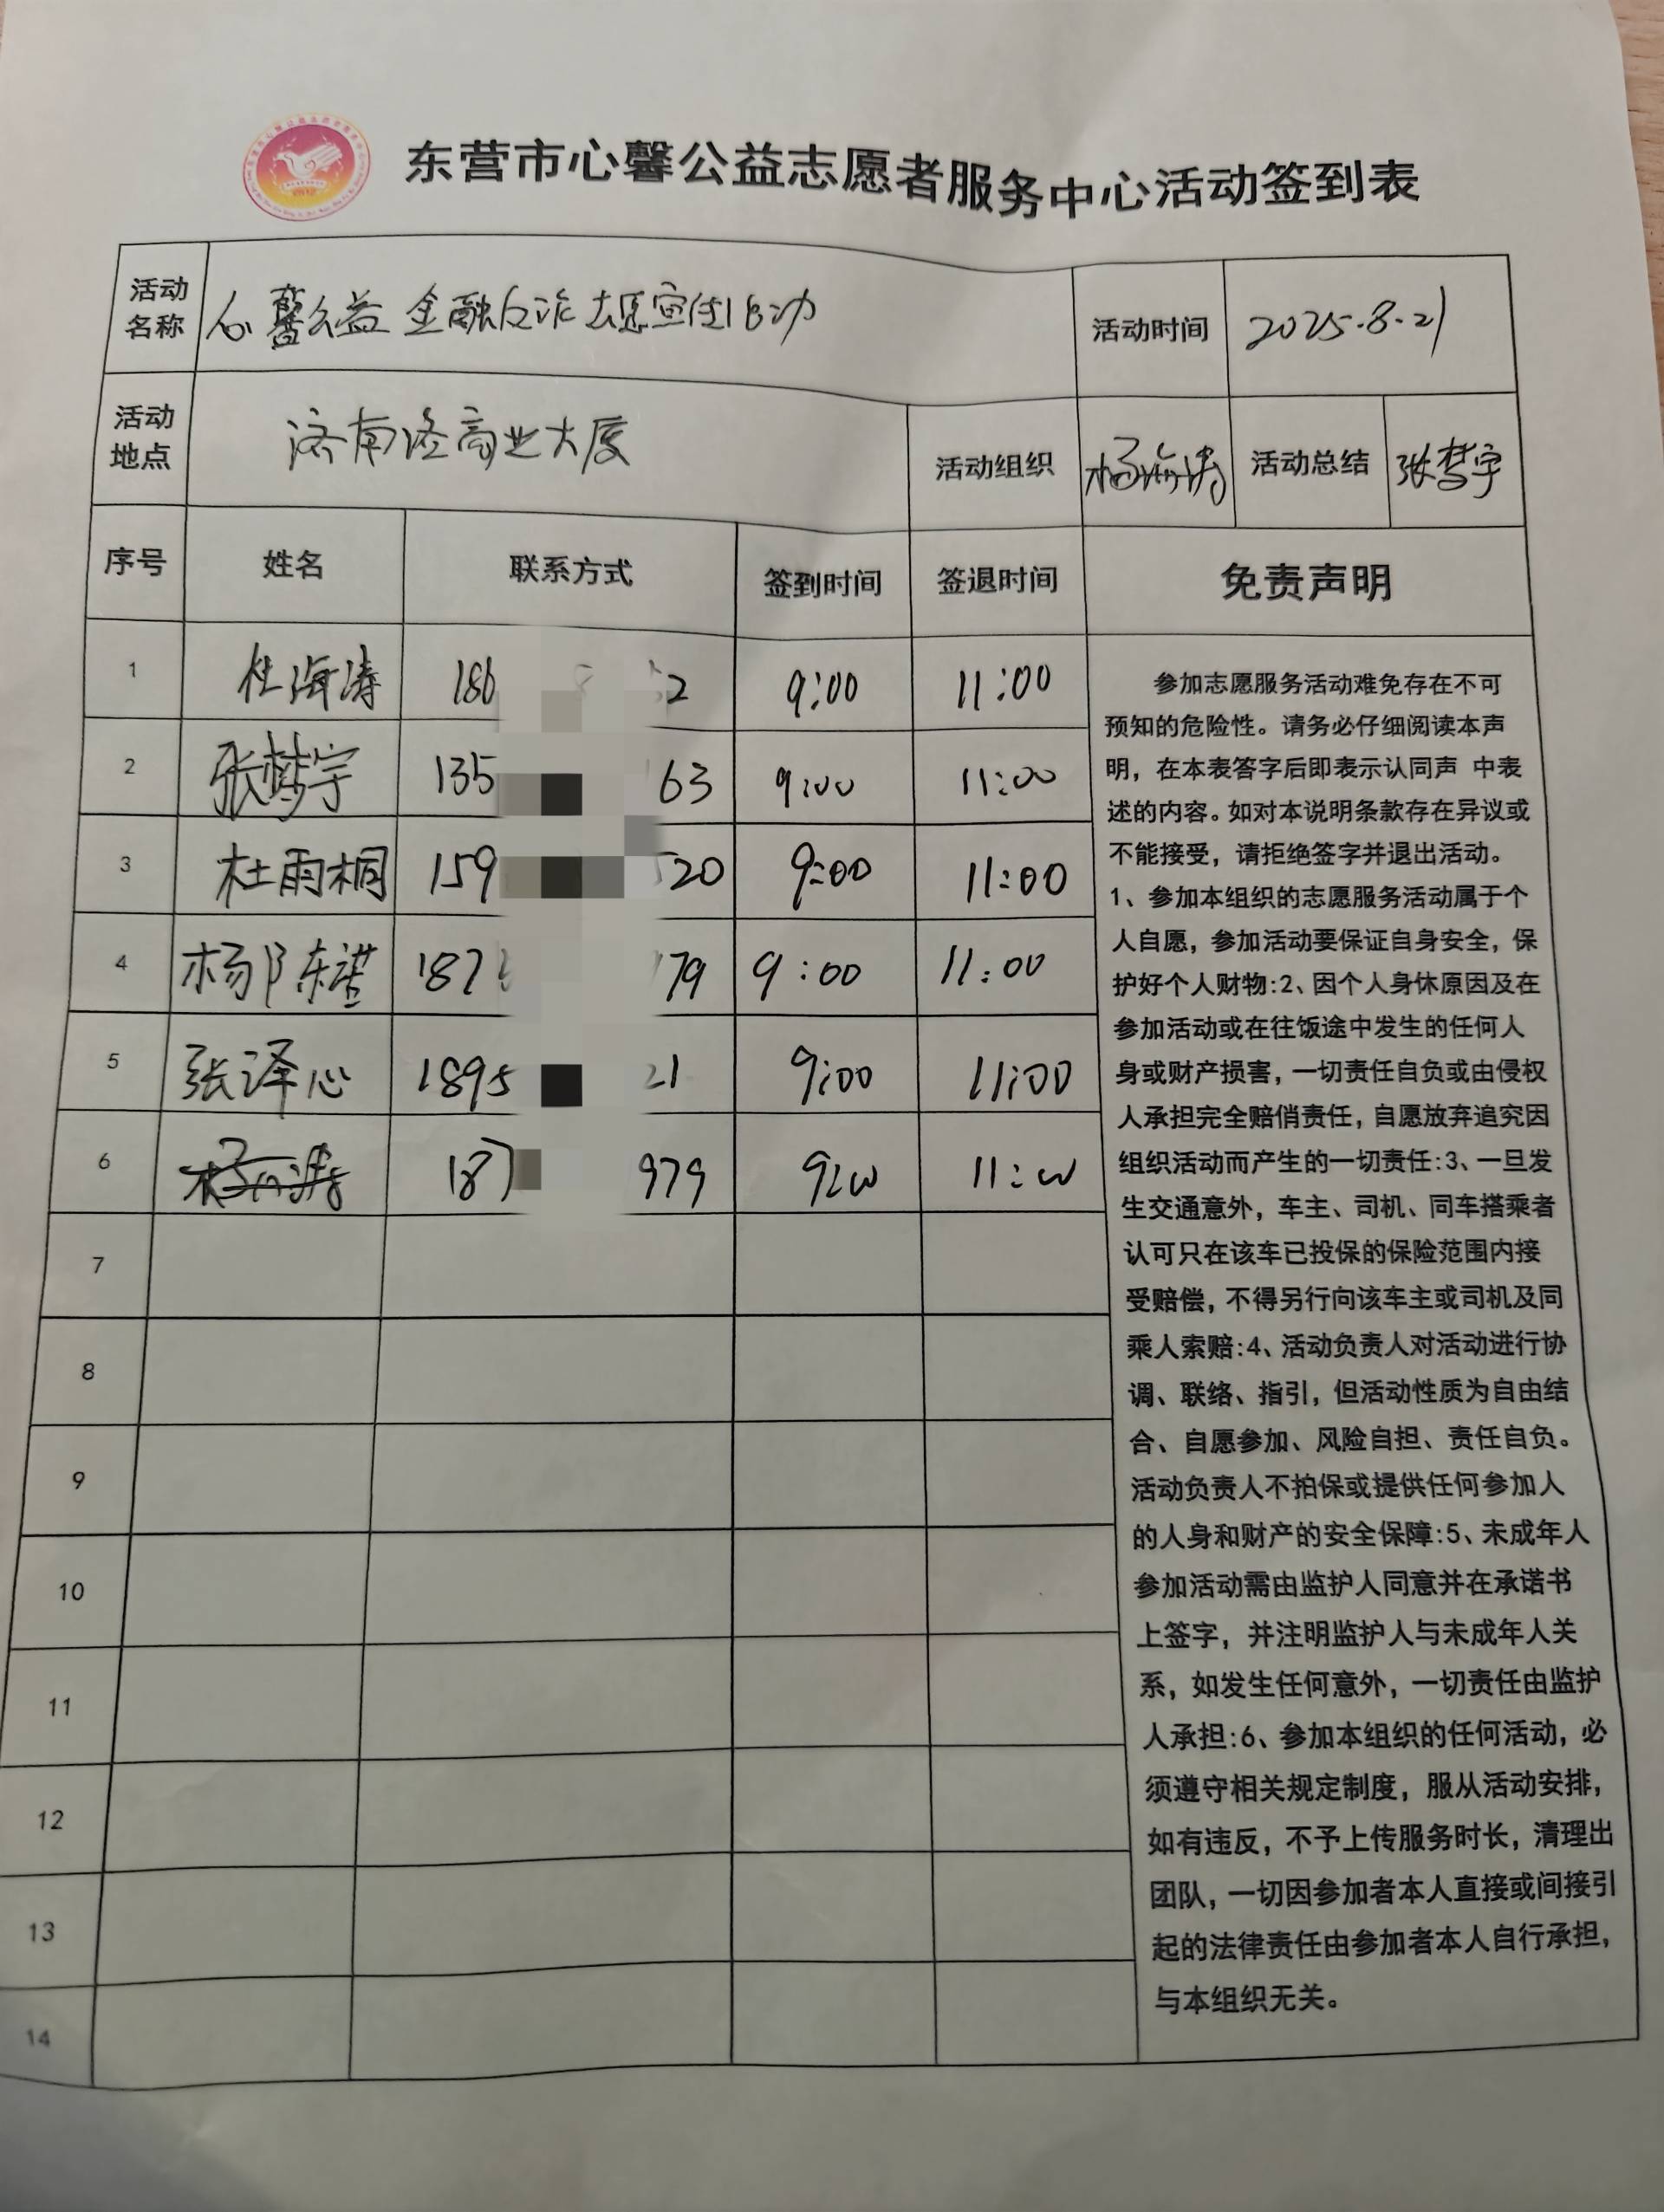 东营市心馨公益志愿者服务中心活动签到表
活动名称 心馨公益 金融反诈志愿宣传活动 活动时间 2025.8.21
活动地点 济南路商业大厦 活动组织 活动总结 张梦宇
序号 姓名 联系方式 签到时间 签退时间 免责声明
1 杜海涛 186 2 9:00 11:00
2 张梦宇 135 63 9:00 11:00
3 杜雨桐 159 520 9:00 11:00
4 187 79 9:00 11:00
5 张泽心 1895 21 9:00 11:00
6 187 979 9:00 11:00
7
8
9
10
11
12
13
14
参加志愿服务活动难免存在不可
预知的危险性。请务必仔细阅读本声
明，在本表答字后即表示认同声 中表
述的内容。如对本说明条款存在异议或
不能接受，请拒绝签字并退出活动。
1、参加本组织的志愿服务活动属于个
人自愿，参加活动要保证自身安全，保
护好个人财物:2、因个人身休原因及在
参加活动或在往饭途中发生的任何人
身或财产损害，一切责任自负或由侵权
人承担完全赔俏责任，自愿放弃追究因
组织活动而产生的一切责任:3、一旦发
生交通意外，车主、司机、同车搭乘者
认可只在该车已投保的保险范围内接
受赔偿，不得另行向该车主或司机及同
乘人索赔:4、活动负责人对活动进行协
调、联络、指引，但活动性质为自由结
合、自愿参加、风险自担、责任自负。
活动负责人不拍保或提供任何参加人
的人身和财产的安全保障:5、未成年人
参加活动需由监护人同意并在承诺书
上签字，并注明监护人与未成年人关
系，如发生任何意外，一切责任由监护
人承担:6、参加本组织的任何活动，必
须遵守相关规定制度，服从活动安排，
如有违反，不予上传服务时长，清理出
团队，一切因参加者本人直接或间接引
起的法律责任由参加者本人自行承担，
与本组织无关。